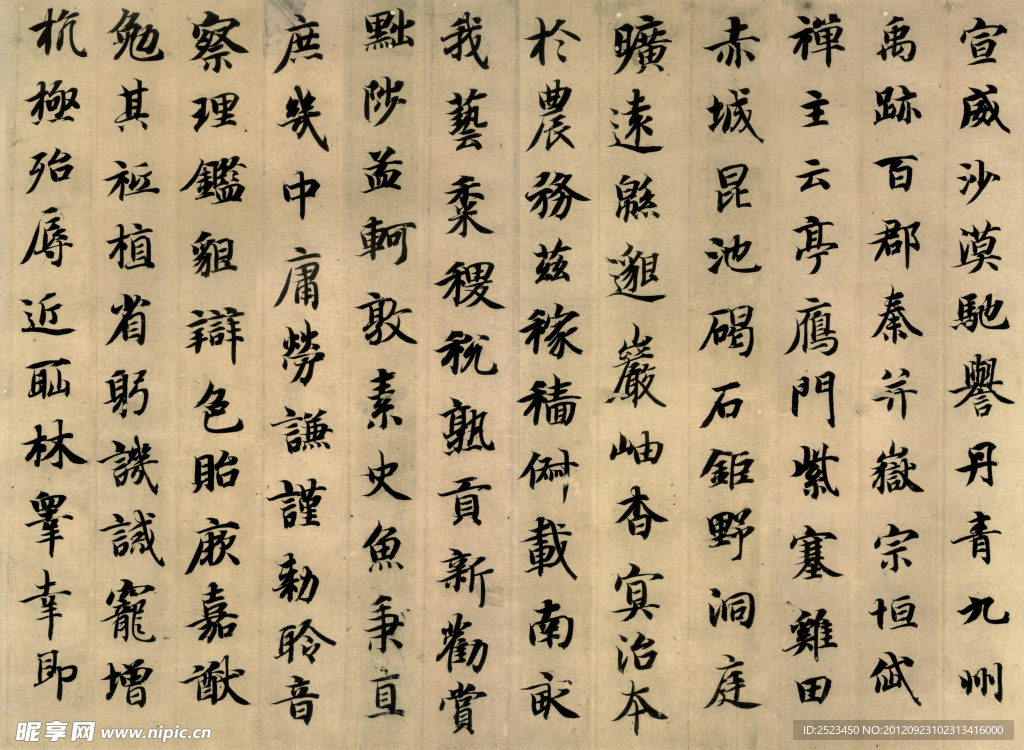 宣威沙漠馳譽丹青九州
禹跡百郡秦并嶽宗恒岱
禪主云亭鴈門紫塞雞田
赤城昆池碣石鉅野洞庭
曠遠緜邈巖岫杳冥治本
於農務茲稼穡俶載南畝
我藝黍稷稅熟貢新勸賞
黜陟孟軻敦素史魚秉直
庶幾中庸勞謙謹勅聆音
察理鑑貌辯色貽厥嘉猷
勉其祗植省躬譏誡寵增
抗極殆辱近恥林睪幸即
昵享网 www.nipic.cn
ID:2523450 NO:20120923102313416000